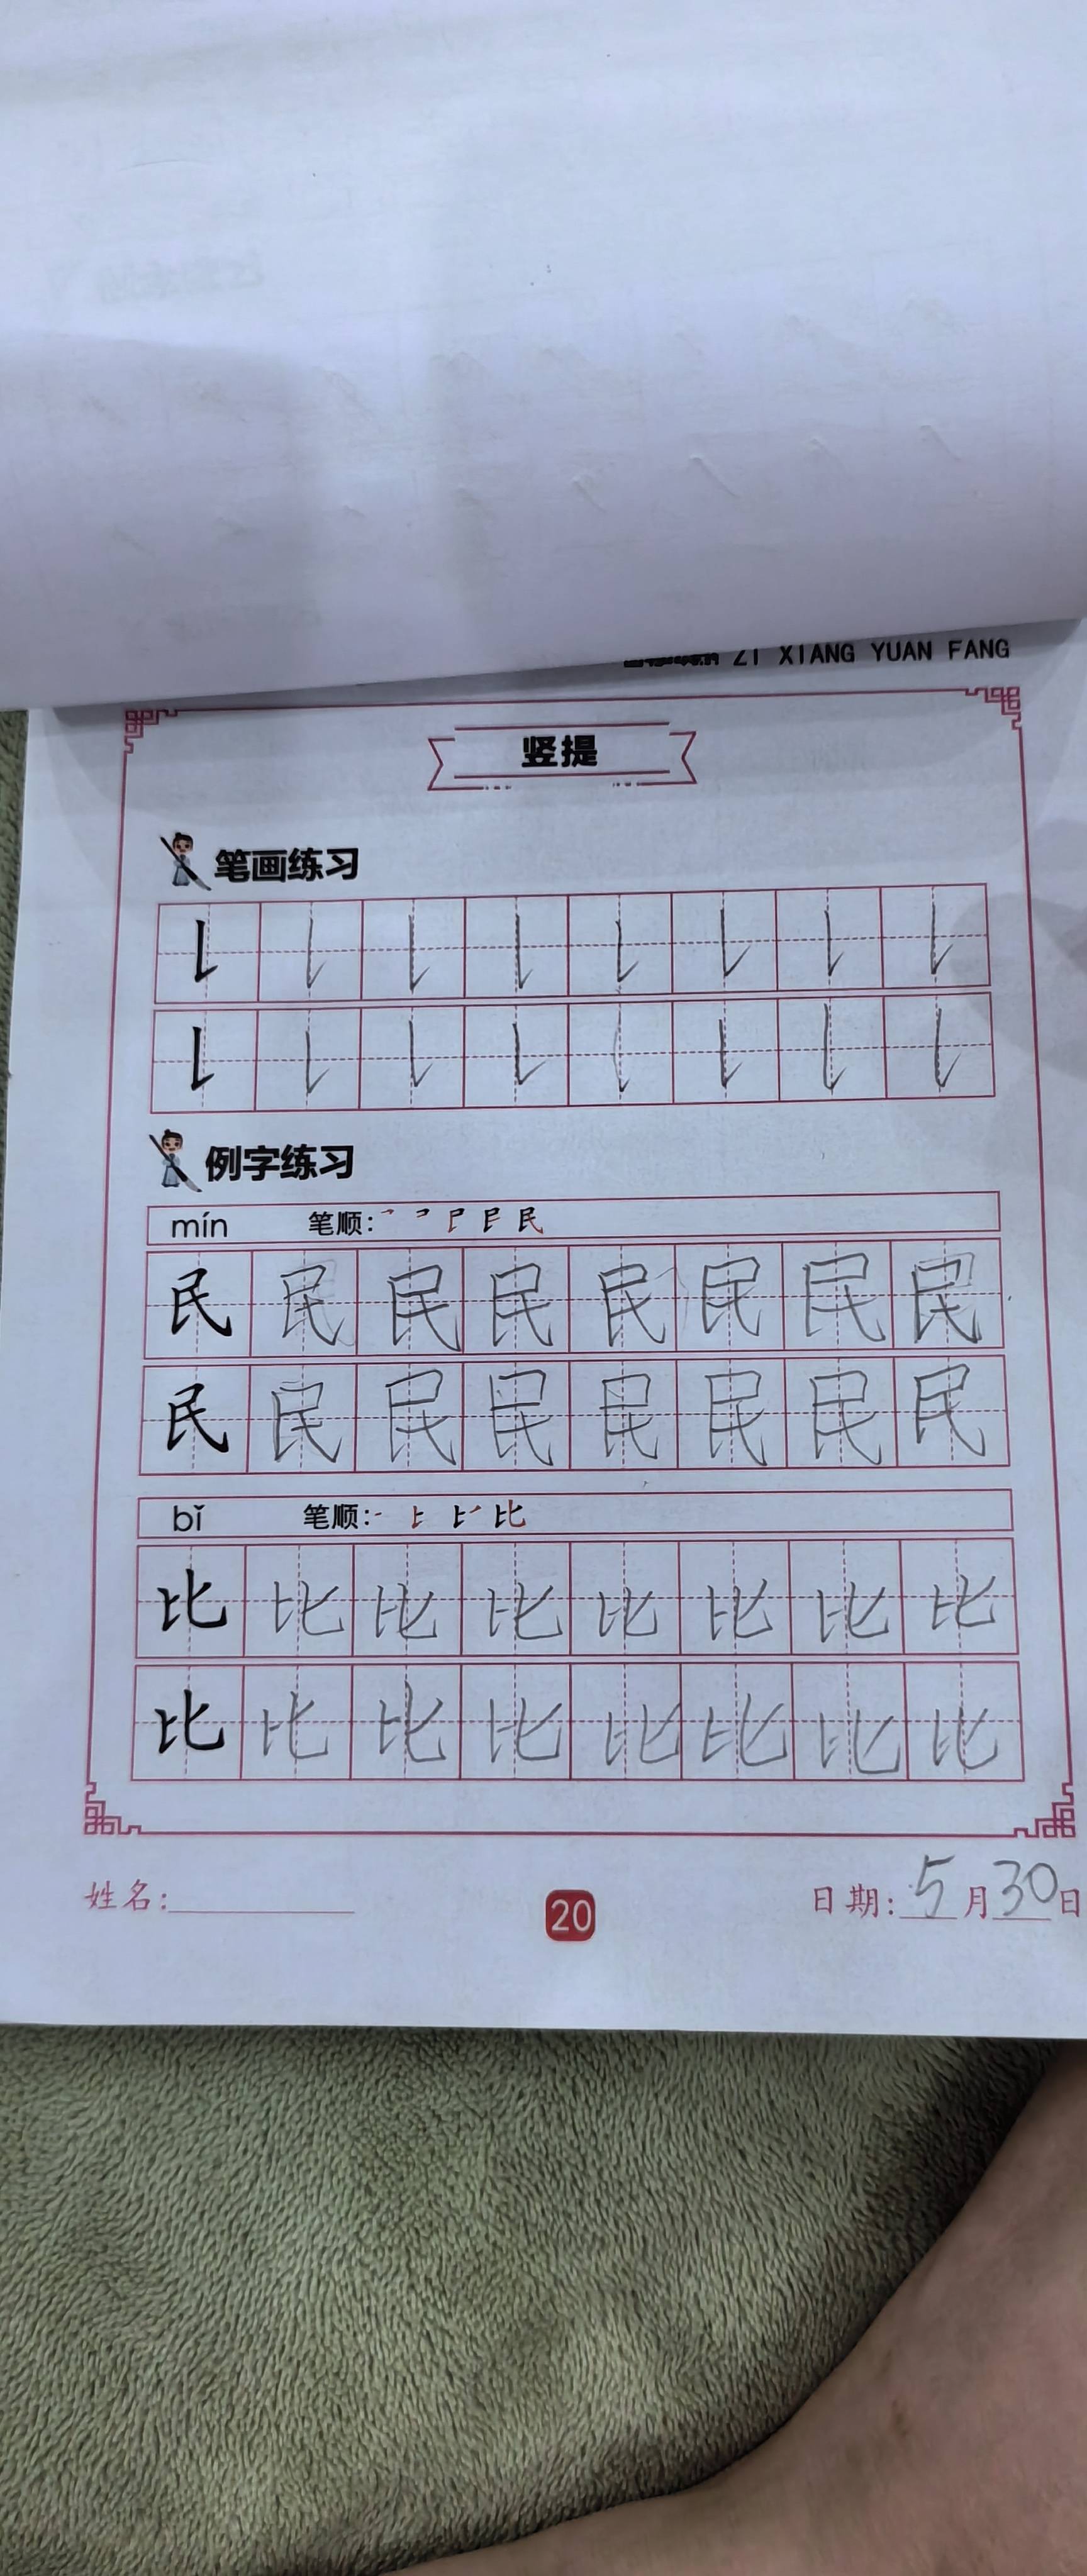 ZI XIANG YUAN FANG
竖提
笔画练习
例字练习
mín 笔顺: 民
民 民 民 民 民 民 民 民
民 民 民 民 民 民 民 民
bǐ 笔顺: 比
比 比 比 比 比 比 比 比
比 比 比 比 比 比 比 比
姓名: 20 日期: 5月30日